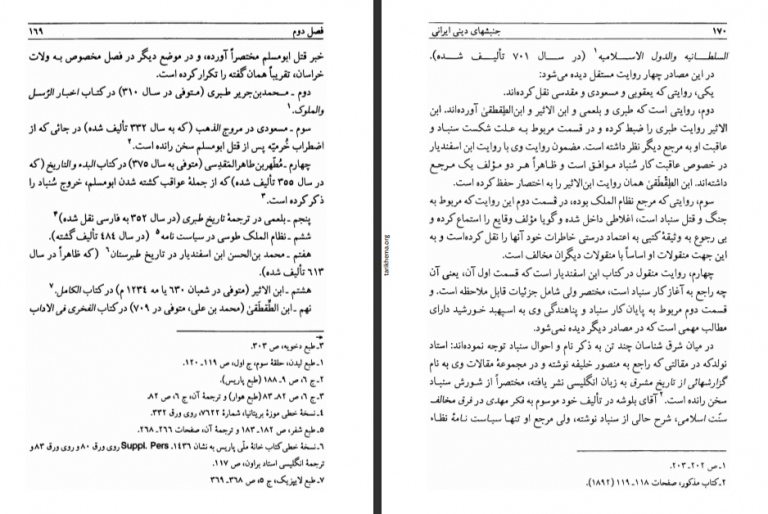 فصل دوم ۱۶۹
خبر قتل ابومسلم مختصراً آورده، و در موضع دیگر در فصل مخصوص به ولات
خراسان، تقریباً همان گفته را تکرار کرده است.
دوم ـ محمدبن‌جریر طبری (متوفی در سال ۳۱۰) در کتاب اخبار الرّسل
والملوک.۱
سوم ـ مسعودی در مروج الذهب (که به سال ۳۳۲ تألیف شده) در جائی که از
اضطراب خُرمیّه پس از قتل ابومسلم سخن رانده است.۲
چهارم ـ مُطَهّربن‌طاهرالمَقدِسی (متوفی به سال ۳۷۵) در کتاب البدء والتاریخ (که
در سال ۳۵۵ تألیف شده) که از جملهٔ عواقب کشته شدن ابومسلم، خروج سُنباد را
ذکر کرده است.۳
پنجم ـ بلعمی در ترجمهٔ تاریخ طبری (در سال ۳۵۲ به فارسی نقل شده)۴
ششم ـ نظام الملک طوسی در سیاست نامه۵ (در سال ۴۸۴ تألیف گشته).
هفتم ـ محمد بن‌الحسن ابن اسفندیار در تاریخ طبرستان۶ (که ظاهراً در سال
۶۱۳ تألیف شده).
هشتم ـ ابن الاثیر (متوفی در شعبان ۶۳۰ یا مه ۱۲۳۴ م) در کتاب الکامل.۷
نهم ـ ابن الطِّقطَقیٰ (محمد بن علی، متوفی در ۷۰۹) در کتاب الفخری فی الاداب
۳ـ طبع دخویه، ص ۳۰۳.
۱ـ طبع لیدن، حلقهٔ سوم، ج اول، ص ۱۱۹ـ۱۲۰.
۲ـ ج ۶، ص ۹ـ۱۸۸ (طبع پاریس).
۳ـ ج ۶، ص ۸۲ـ۸۳ (طبع هوار) و ترجمهٔ آن، ج ۶، ص ۸۲.
۴ـ نسخهٔ خطی موزهٔ بریتانیا، شمارهٔ ۷۶۲۲، روی ورق ۳۳۲.
۵ـ طبع شفر، ص ۱۸۲ـ۱۸۳ و ترجمهٔ آن، صفحات ۲۶۶ـ۲۶۸.
۶ـ نسخهٔ خطی کتاب خانهٔ ملّی پاریس به نشان ۱۴۳۶ .Suppl. Pers روی ورق ۸۰ و روی ورق ۸۳ و
ترجمهٔ انگلیسی استاد براون، ص ۱۱۷.
۷ـ طبع لایپزیک، ج ۵، ص ۳۶۸ـ۳۶۹
tarikhema.org
۱۷۰ جنبشهای دینی ایرانی
السلطانیه والدول الاسلامیه۱ (در سال ۷۰۱ تألیف شده).
در این مصادر چهار روایت مستقل دیده می‌شود:
یکی، روایتی که یعقوبی و مسعودی و مقدسی نقل کرده‌اند.
دوم، روایتی است که طبری و بلعمی و ابن الاثیر و ابن‌الطِقطَقیٰ آورده‌اند. ابن
الاثیر روایت طبری را ضبط کرده و در قسمت مربوط به علت شکست سنباد و
عاقبت او به مرجع دیگر نظر داشته است. مضمون روایت وی با روایت ابن اسفندیار
در خصوص عاقبت کار سُنباد موافق است و ظاهراً هر دو مؤلف یک مرجع
داشته‌اند. ابن الطِقْطَقیٰ همان روایت ابن‌الاثیر را به اختصار حفظ کرده است.
سوم، روایتی که مرجع نظام الملک بوده، در قسمت دوم این روایت که مربوط به
جنگ و قتل سنباد است، اغلاطی داخل شده و گویا مؤلف وقایع را استماع کرده و
بی رجوع به وثیقهٔ کتبی به اعتماد درستی خاطرات خود آنها را نقل کرده‌است و به
این جهت منقولات او اساساً با منقولات دیگران مخالف است.
چهارم، روایت منقول در کتاب ابن اسفندیار است که قسمت اول آن، یعنی آن
چه راجع به آغاز کار سنباد است، مختصر ولی شامل جزئیات قابل ملاحظه است. و
قسمت دوم مربوط به پایان کار سنباد و پناهندگی وی به اسپهبد خورشید دارای
مطالب مهمی است که در مصادر دیگر دیده نمی‌شود.
در میان شرق شناسان چند تن به ذکر نام و احوال سنباد توجه نموده‌اند: استاد
نولدکه در مقالتی که راجع به منصور خلیفه نوشته و در مجموعهٔ مقالات وی به نام
گزارشهائی از تاریخ مشرق به زبان انگلیسی نشر یافته، مختصراً از شورش سنباد
سخن رانده است.۲ آقای بلوشه در تألیف خود موسوم به فکر مهدی در فرق مخالف
سنّت اسلامی، شرح حالی از سنباد نوشته، ولی مرجع او تنها سیاست نامهٔ نظام
۱ـ ص ۲۰۲ـ۲۰۳.
۲ـ کتاب مذکور، صفحات ۱۱۸ـ۱۱۹ (۱۸۹۲).